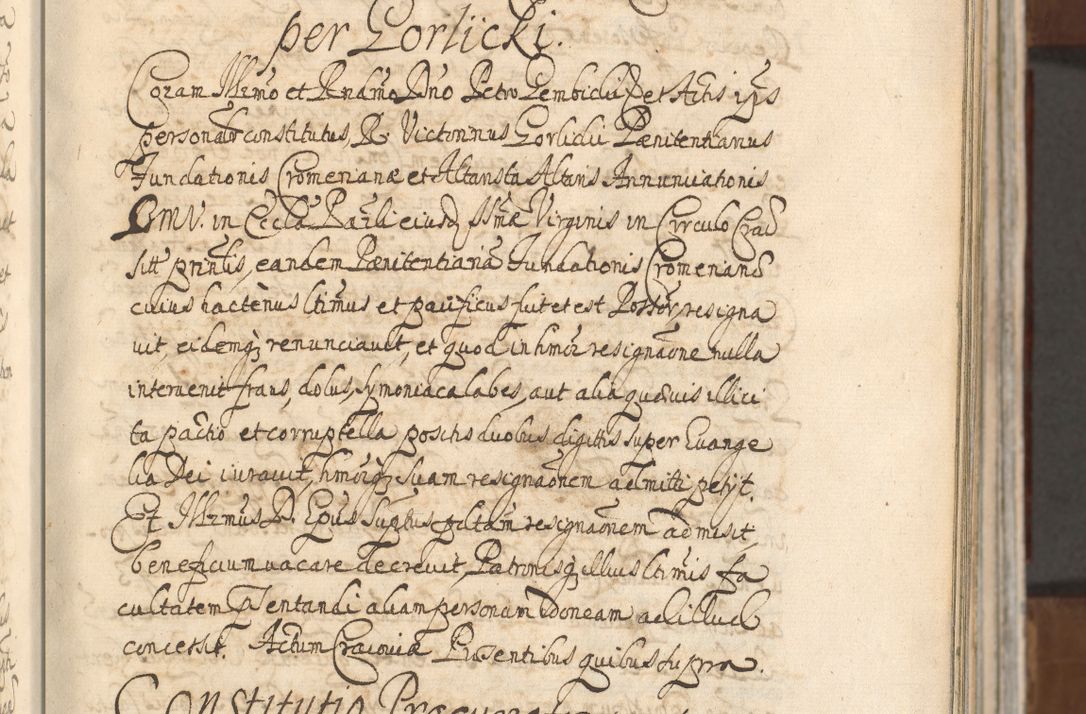 per Gorlicki.
Coram Illrmo et Rndmo Dno Petro Gembicki et Actis ips
personalr constitutus, R. Victorinus Gorlicki Pænitentiarius
Fundationis Cromerianæ et Altarista Altaris Annunciationis
BMV. in Eccla Parli eiusq Ssmæ Virginis in Circulo Crac
sitt prinlis, eandem Pænitentiariã Fundationis Cromerianæ
cuius hactenus ltimus et pacificus fuit et est Possor, resigna
uit, eidemq3 renunciauit, et quod in hmoi resignaone nulla
interuenit fraus, dolus, symoniaca labes, aut alia quæuis illici
ta pactio et corruptella positis duobus digitis super Euange
lia Dei iurauit, hmoiq3 suam resignaonem admitti petijt.
Et Illrmus D. Epus Supttus ptam resignaonem admisit
beneficium vacare decreuit, Patronisq3 illius ltimis fa
cultatem Pntandi aliam personam idoneam ad illud
concessit. Actum Cracoviæ Præsentibus quibus supra.
Constitutio